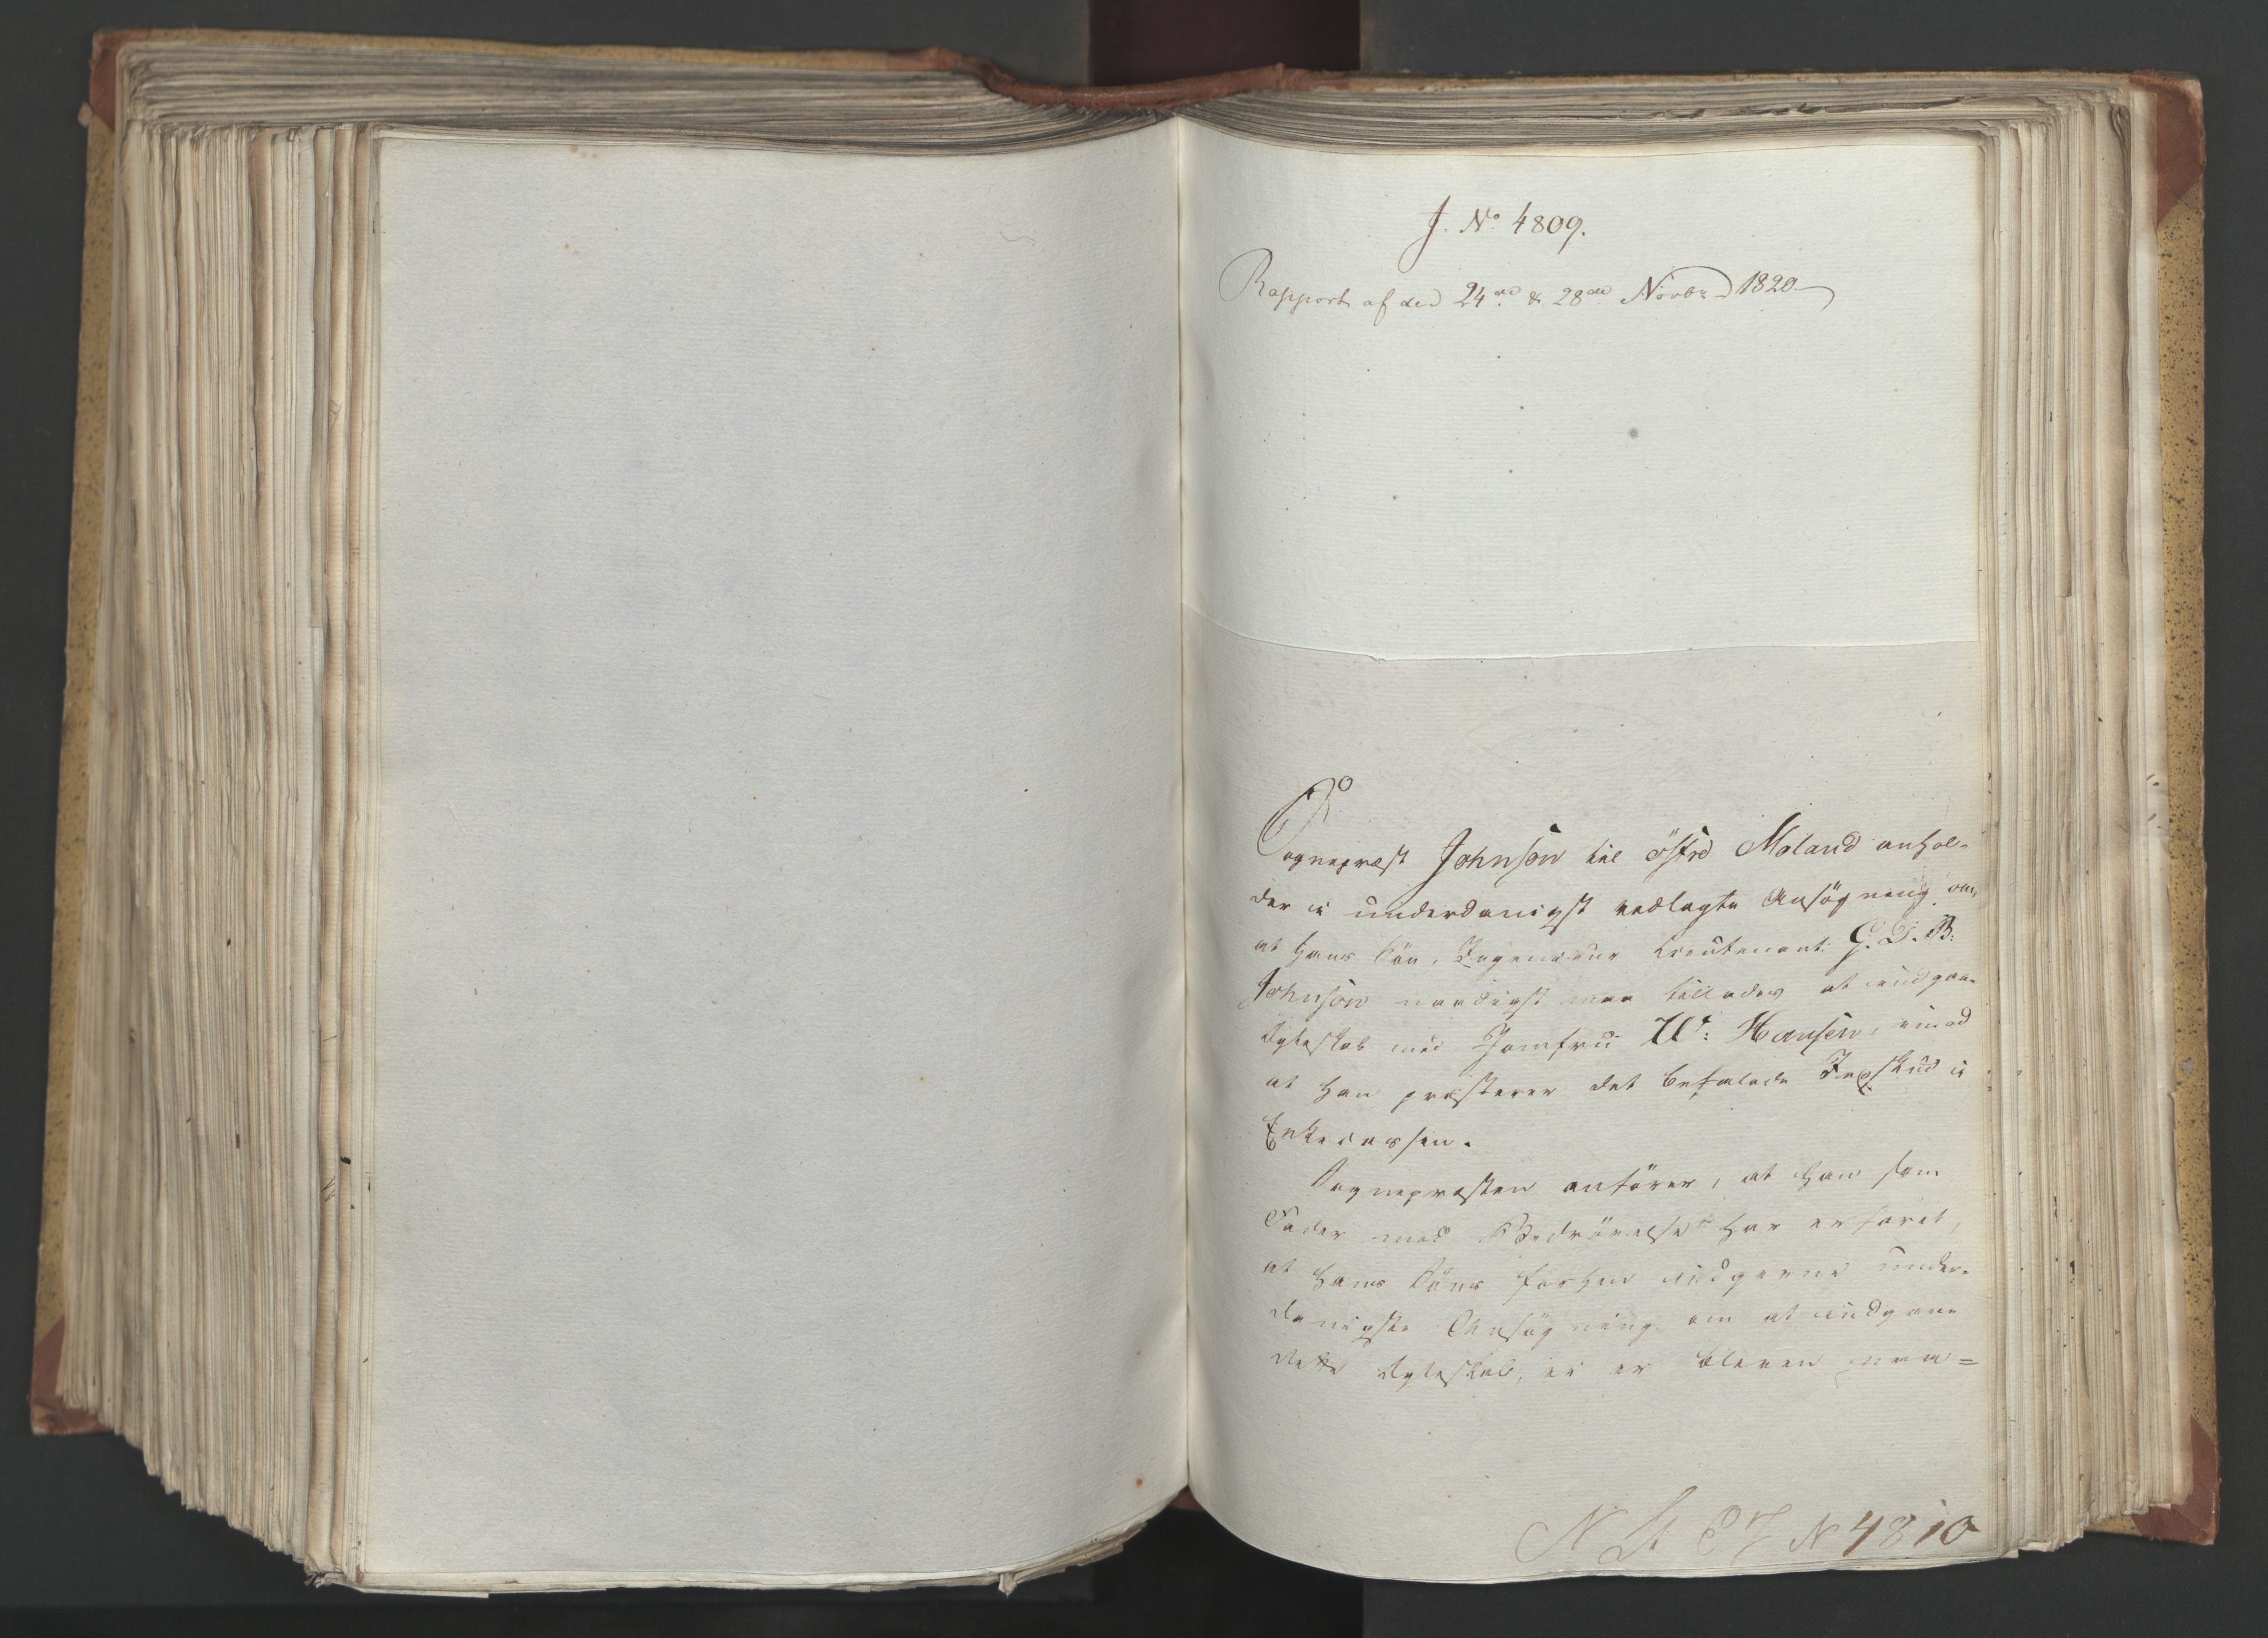 J. No 4809.
Rapport af den 24de & 28de Novbr 1820
Sognepræst Johnson til östre Moland anhol-
der i underdanigst vedlagte Ansögning om,
at hans Sön, Ingenieur Lieutenant G. D. B.
Johnson naadigst maa tillades at indgaae
Ægteskab med Jomfru U. Hansen, imod
at han præsterer det befalede Indskud i
Enkecassen.
Sognepræsten anförer, at han som
Fader med Bedrövelse har erfaret,
at hans Söns forhen indgivne under-
danigste Ansögning om at indgaae
dette Ægteskab, ei er bleven naa=
N 4810